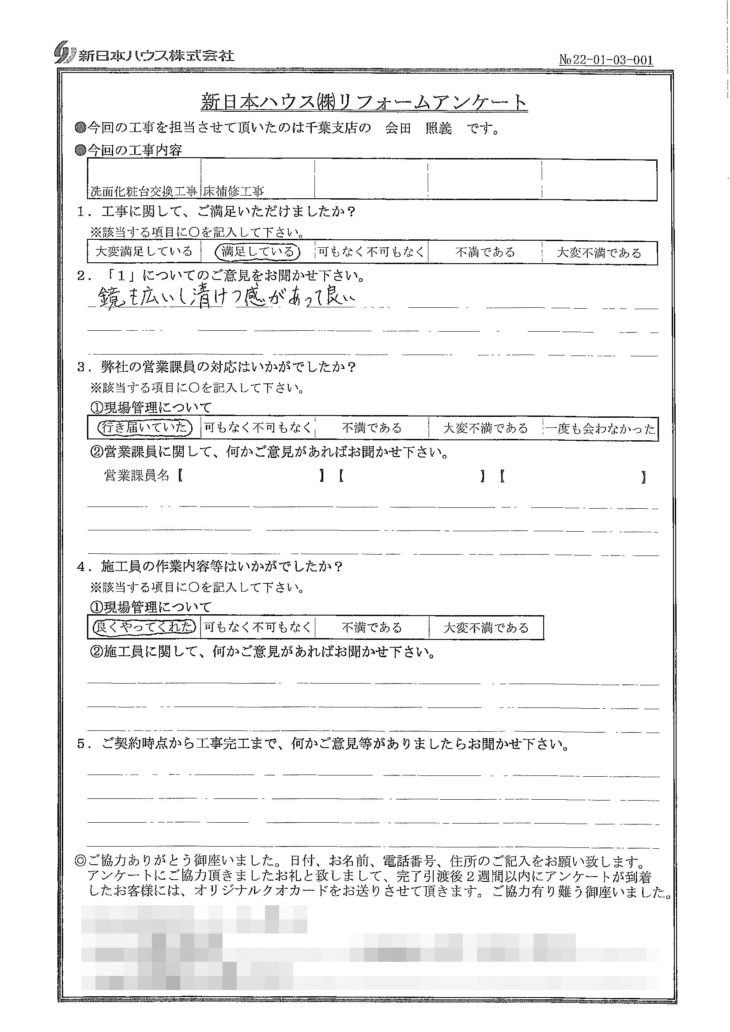 新日本ハウス株式会社
№22-01-03-001
新日本ハウス㈱リフォームアンケート
●今回の工事を担当させて頂いたのは千葉支店の 会田 照義 です。
●今回の工事内容
洗面化粧台交換工事 床補修工事
1．工事に関して、ご満足いただけましたか？
※該当する項目に○を記入して下さい。
大変満足している 満足している 可もなく不可もなく 不満である 大変不満である
2．「1」についてのご意見をお聞かせ下さい。
鏡も広いし清けつ感があって良い
3．弊社の営業課員の対応はいかがでしたか？
※該当する項目に○を記入して下さい。
①現場管理について
行き届いていた 可もなく不可もなく 不満である 大変不満である 一度も会わなかった
②営業課員に関して、何かご意見があればお聞かせ下さい。
営業課員名【 】【 】【 】
4．施工員の作業内容等はいかがでしたか？
※該当する項目に○を記入して下さい。
①現場管理について
良くやってくれた 可もなく不可もなく 不満である 大変不満である
②施工員に関して、何かご意見があればお聞かせ下さい。
5．ご契約時点から工事完工まで、何かご意見等がありましたらお聞かせ下さい。
◎ご協力ありがとう御座いました。日付、お名前、電話番号、住所のご記入をお願い致します。
アンケートにご協力頂きましたお礼と致しまして、完了引渡後2週間以内にアンケートが到着
したお客様には、オリジナルクオカードをお送りさせて頂きます。ご協力有り難う御座いました。